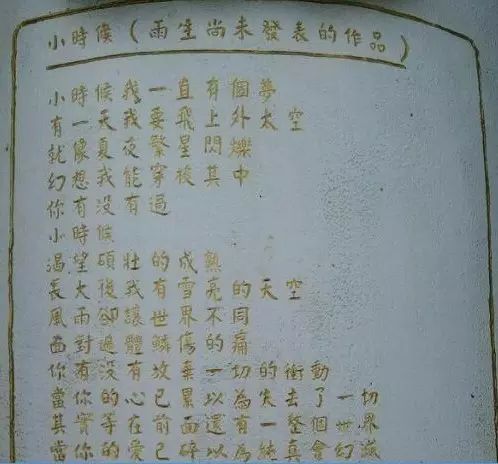 小時候(雨生尚未發表的作品)
小時候我一直有個夢
有一天我要飛上外太空
就像夏夜繁星閃爍
幻想我能穿梭其中
你有沒有過
小時候
渴望碩壯的成熟
長大後我有雪亮的天空
風雨卻讓世界不同
面對遍體鱗傷的痛
你有沒有放棄一切的衝動
當你的心已累以為失去了一切
其實等在前面還有一整個世界
當你的愛已碎以為純真會幻滅